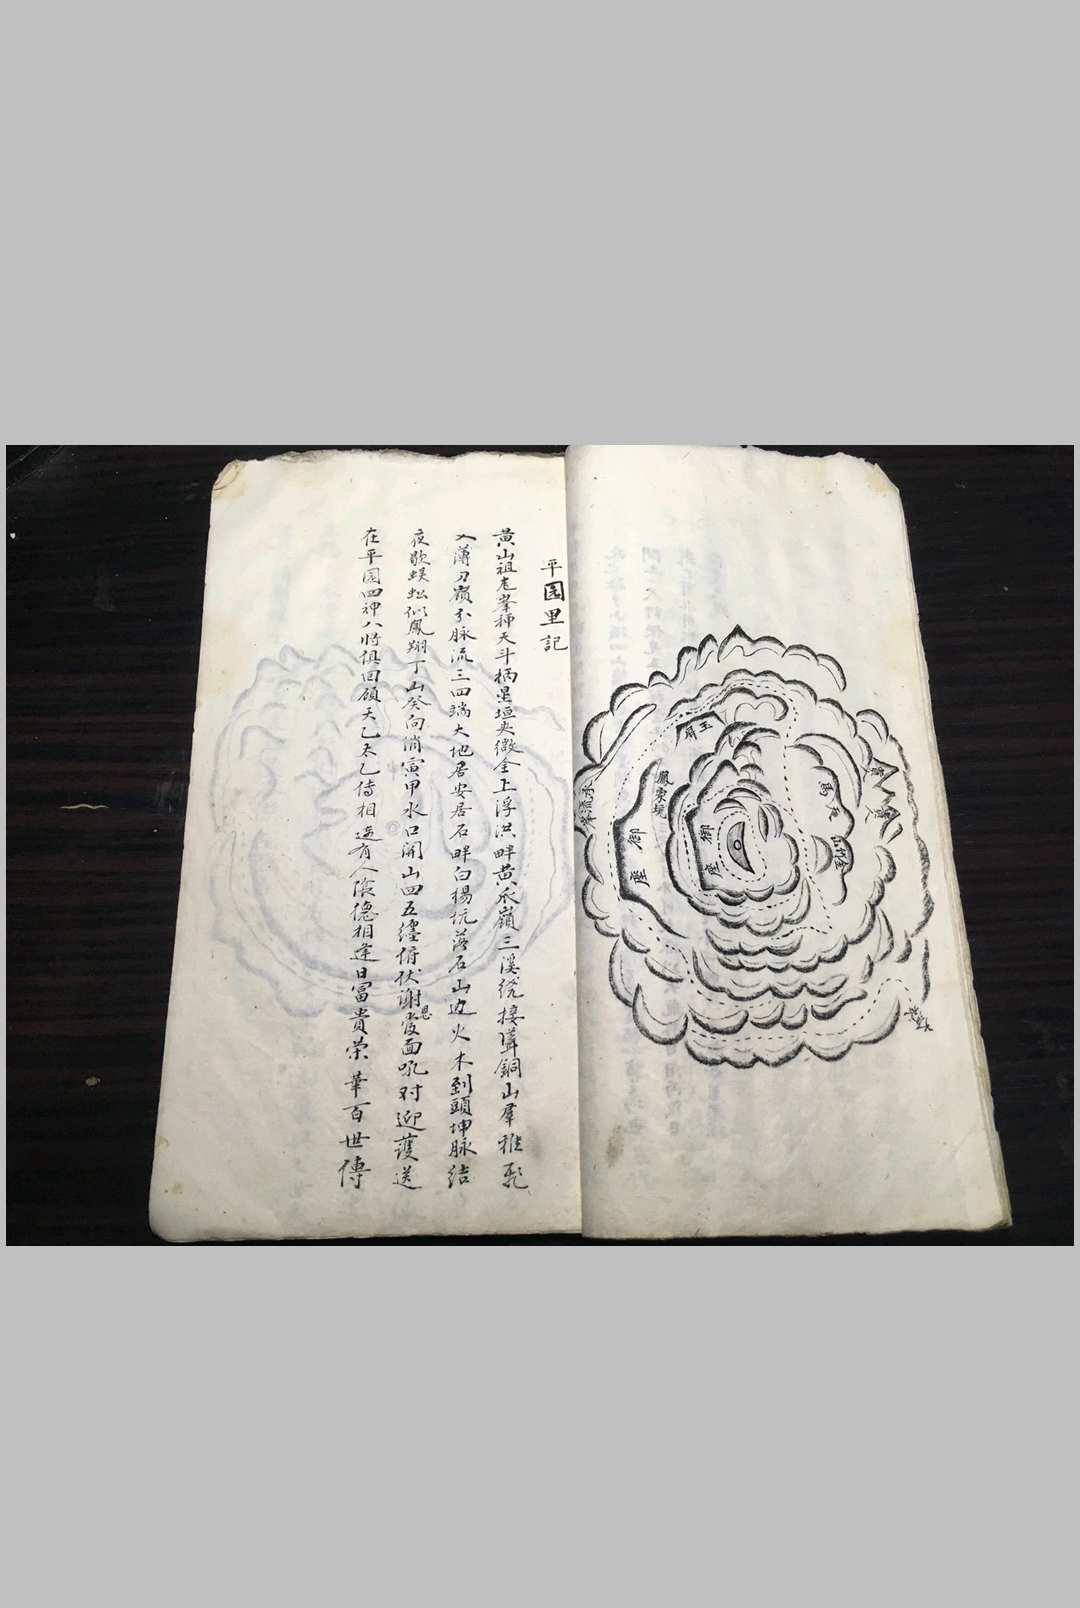 平园里記
黄山祖老峯揷天斗柄星垣夾微全上浮洪畔黄爪嶺三溪繞接葺銅山羣推亂
入薄刀嶺分脉流三四端大地居安居石畔白楊坑落石山边火木到頭坤脉结
夜歇蜈蚣似鳳翔丁山癸向俏寅甲水口開山四五纏俯伏谢恩後面吼对迎護送
在平园四神八將俱回顧天乙太乙侍相边有人陰德相逢日富貴荣華百世傳
玉屏
鳳東坑
御座
御座